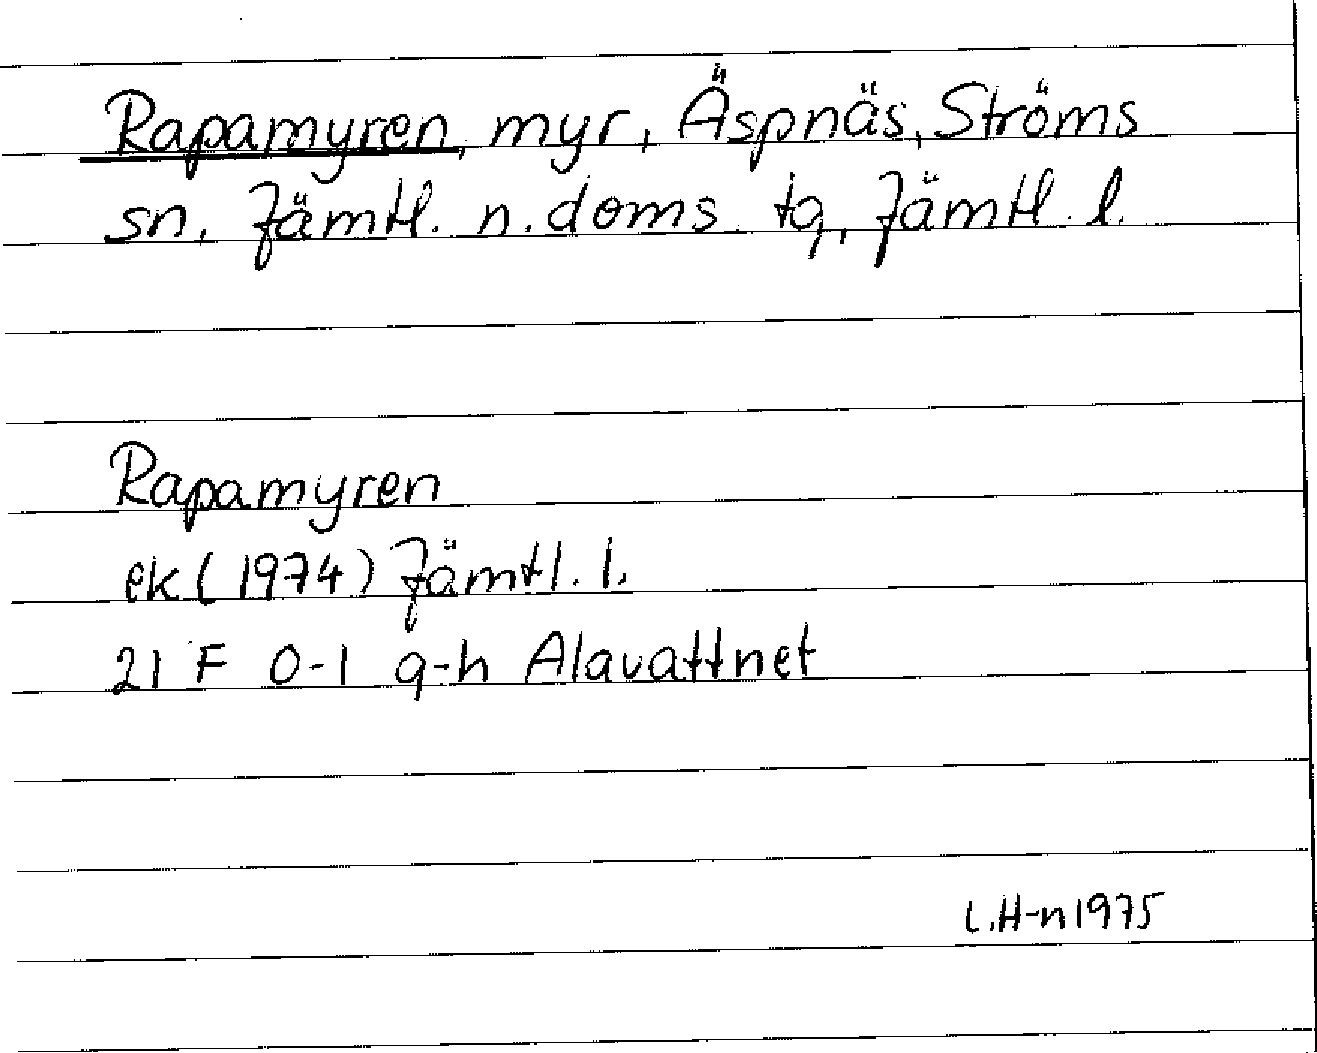 Rapamyren, myr, Äspnäs, Ströms
sn, Jämtl. n. doms. tg, Jämtl. l.
Rapamyren
ek (1974) Jämtl. l.
21 F 0-1 g-h Alavattnet
L.H-n 1975